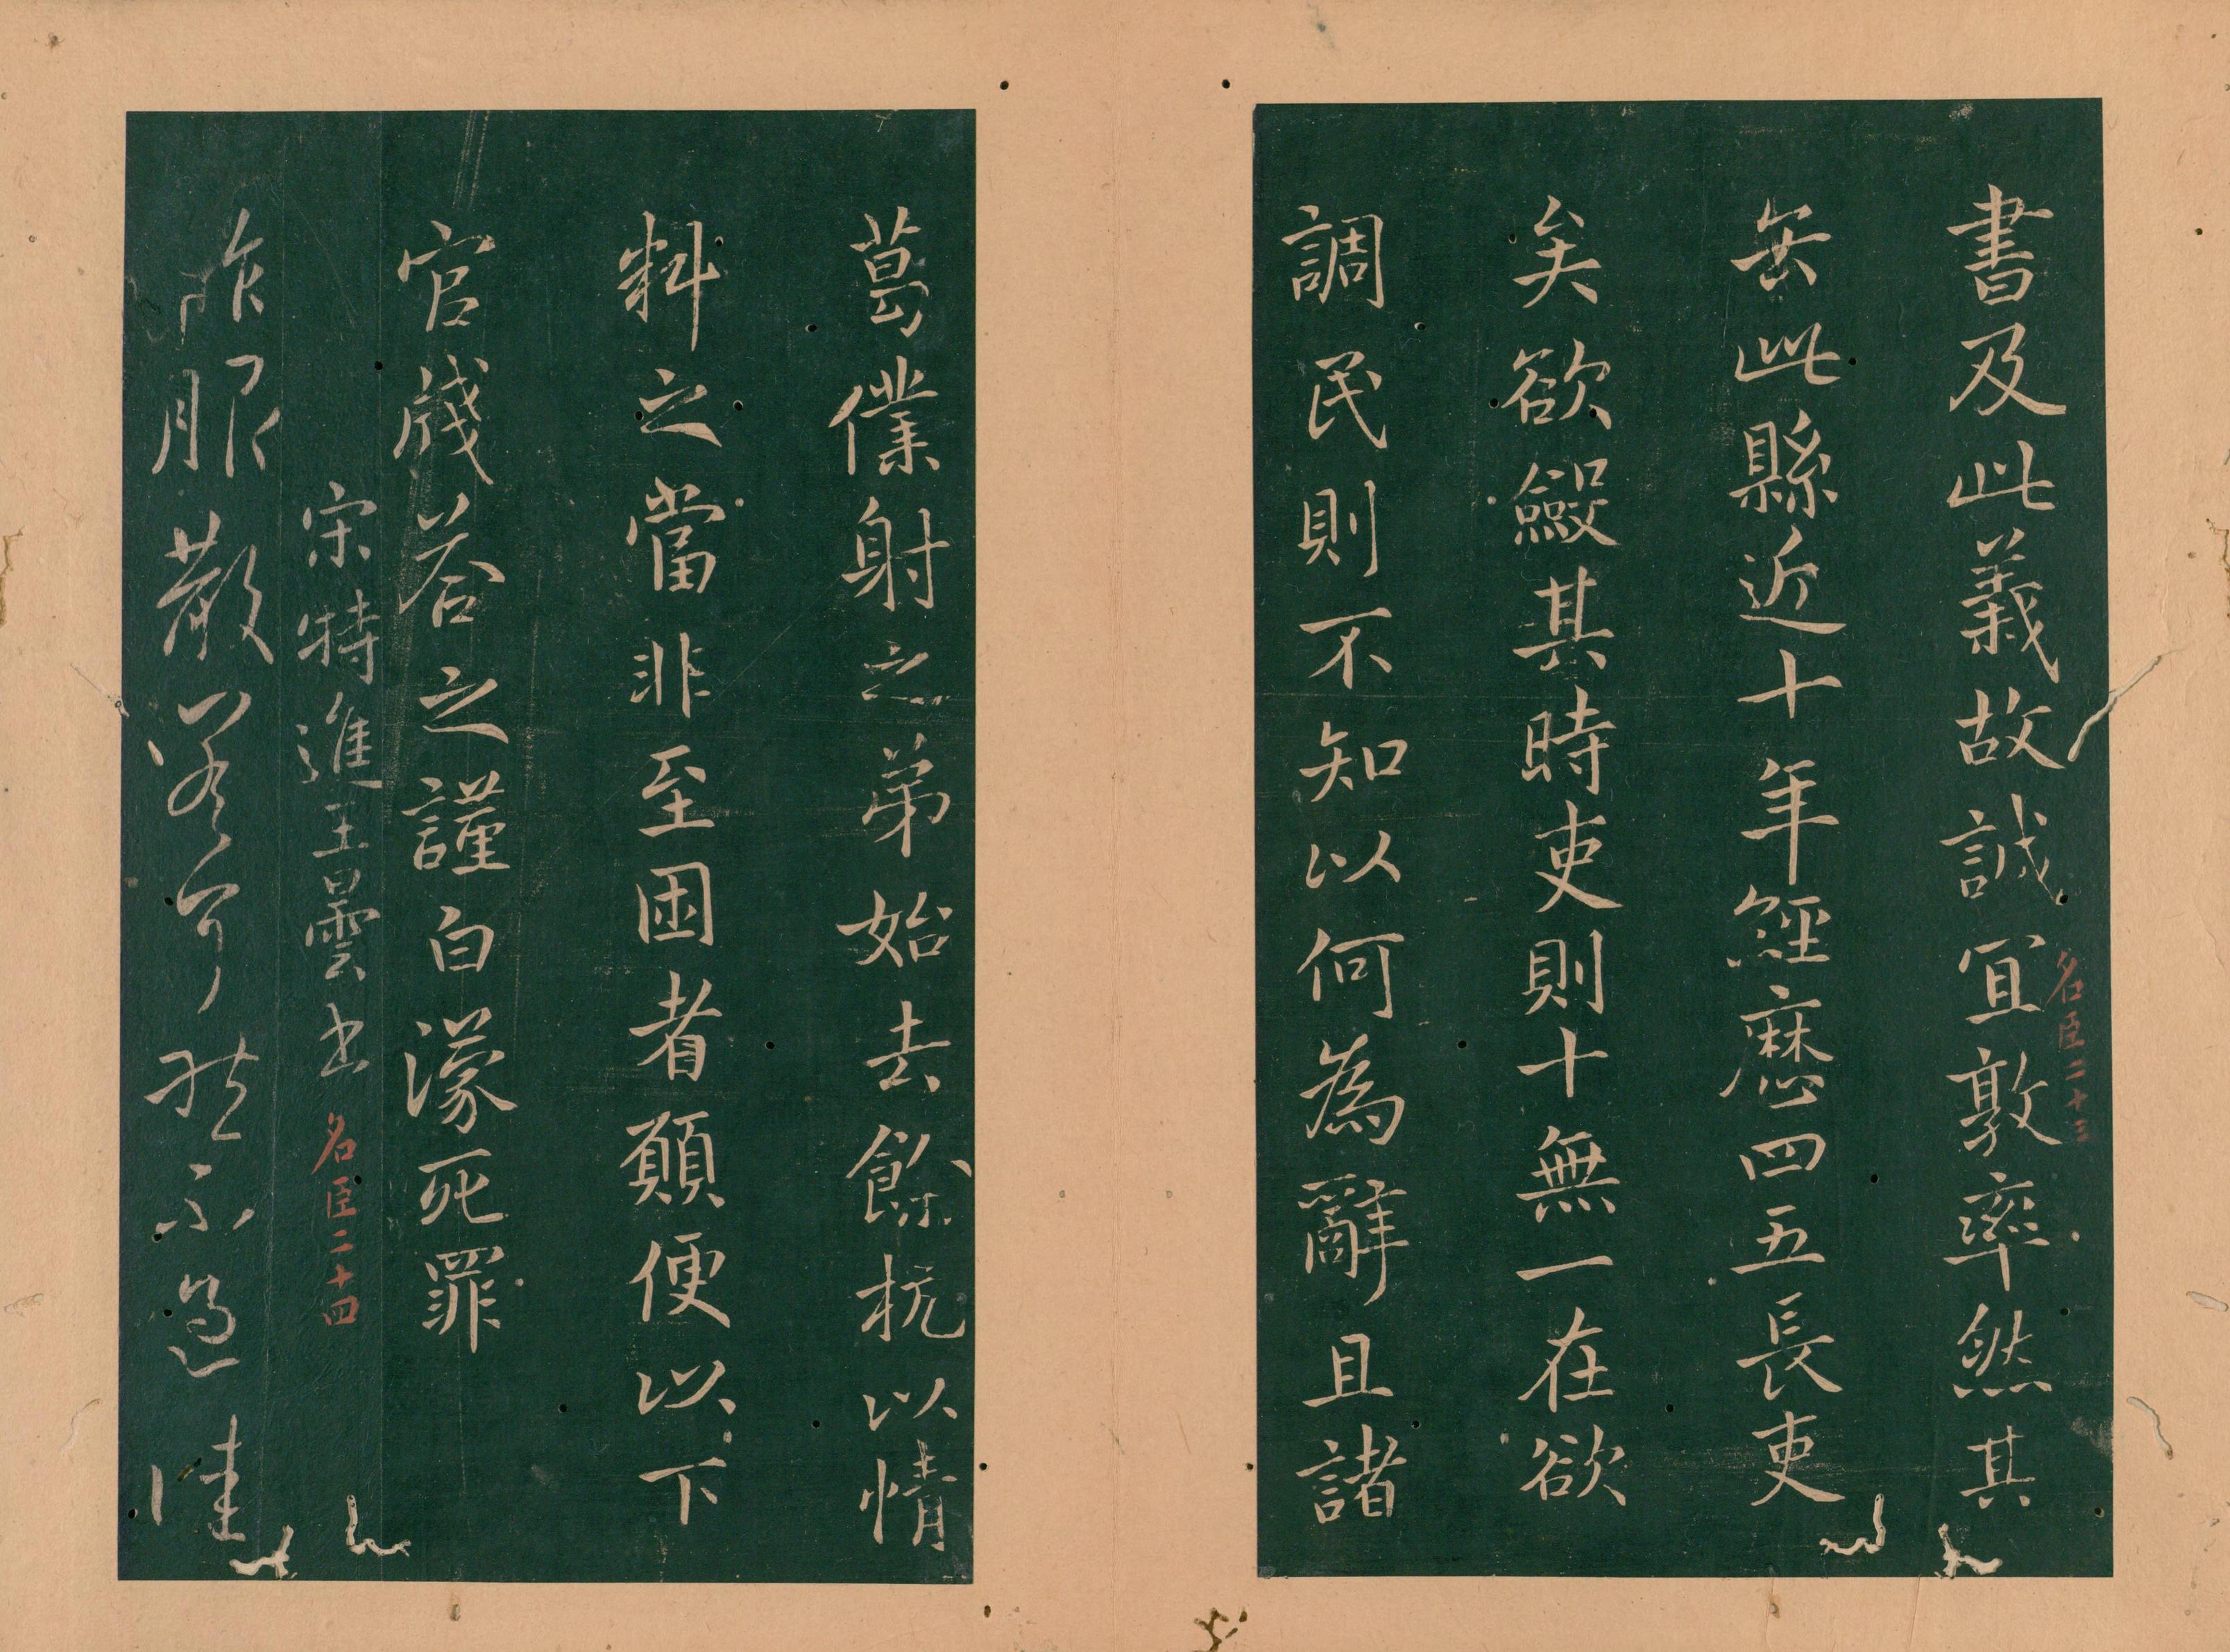 書及此義故誠冝敦率然其
名臣二十三
此縣近十年經歷四五長吏
矣欲斂其時吏則十無一在欲
調民則不知以何為辭且諸
葛僕射之弟始去餘杭以情
料之當非至困者願便以下
官牋荅之謹白濛死罪
宋特進王曇書
名臣二十四
昨服散不佳